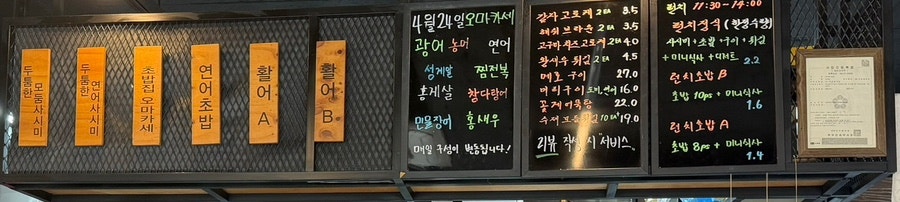 두툼한 모둠사시미
두툼한 연어사시미
초밥집 오마카세
연어초밥
활어 A
활어 B
4월24일오마카세
광어 농어 연어
성게알 찜전복
홍게살 참다랑어
민물장어 홍새우
매일 구성이 바뀝니다!
감자 고로케 2EA 3.5
해쉬 브라운 2EA 3.5
고구마 치즈고로케 2EA 4.0
왕새우 튀김 2EA 4.5
메로 구이 27.0
머리구이 16.0
꽃게미역탕 22.0
수제 10EA 19.0
리뷰 작성 시 서비스.
런치 11:30-14:00
런치정식 (한정수량)
사시미+초밥+구이+튀김
+미니식사+디저트
2.2
런치초밥 B
초밥 10ps + 미니식사
1.6
런치초밥 A
초밥 8ps + 미니식사
1.4